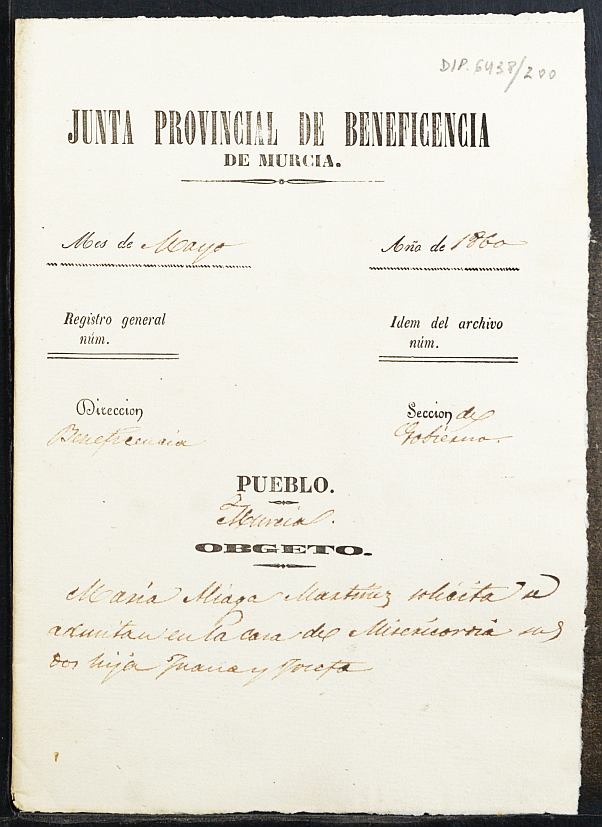 DIP. 6438/200
JUNTA PROVINCIAL DE BENEFICENCIA
DE MURCIA.
Mes de Mayo
Año de 1860
Registro general
núm.
Idem del archivo
núm.
Direccion
Beneficencia
Seccion de
Gobierno.
PUEBLO.
Murcia.
OBGETO.
Maria Aliaga Martinez solicita se
admitan en la casa de Misericordia sus
dos hija Juana y Josefa